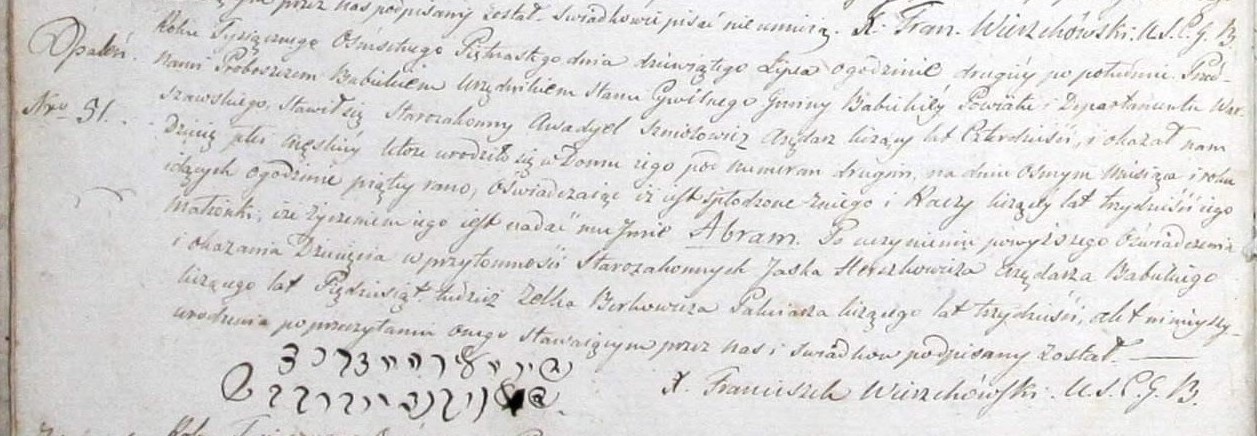 przez nas podpisany został. Swiadkowie pisać nie umieią. X. Fran. Wierzchowski. U.S.C.G.B.
Opaleń. Roku Tysiącznego Osmsetnego Piętnastego dnia dziewiątego Lipca o godzinie drugiey po południu. Przed
Nro 51. nami Proboszczem Babickiem Urzędnikiem Stanu Cywilnego Gminy Babickiey Powiatu i Departamentu War-
szawskiego, stawił się Starozakonny Szmiotowicz Arędarz liczący lat Czterdzieści, i okazał nam
Dziecię płci męskiey które urodziło się w Domu iego pod numerem drugim, na dniu osmym miesiąca i roku
idących o godzinie piątey rano, oświadczaiąc iż iest spłodzone z niego i liczącey lat trzydzieści iego
małżonki, i że życzeniem iego iest nadać mu Jmie Abram. Po uczynieniu powyższego oświadczenia
i okazania Dziecięcia w przytomności Starozakonnych Jaska Herszkowicza Arędarza Babickiego
liczącego lat Pięćdziesiąt, tudzież Zelka Berkowicza liczącego lat trzydzieści, akt ninieyszy
urodzenia po przeczytaniu onego stawaiącym przez nas i swiadkow podpisany został.
X. Franciszek Wierzchówski. U.S.C.G.B.